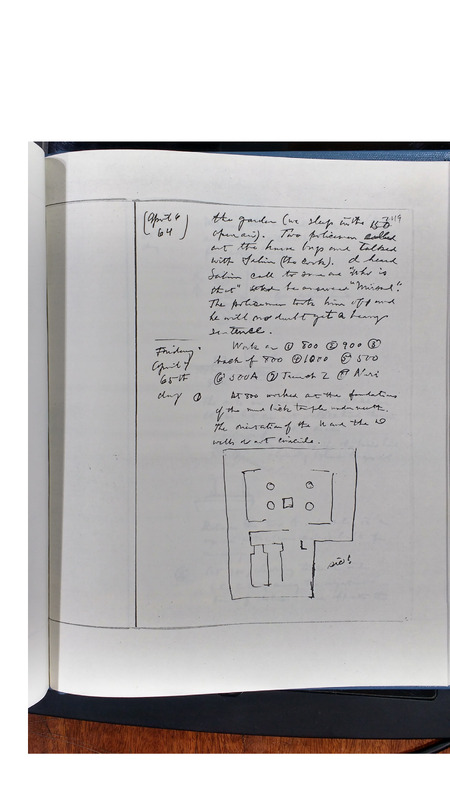 (April 6
64)
the garden (we sleep in the
open air). Two policemen called
at the house boys and talked
with Salim (the cook). I heard
Salim call to someone "Who is
that" and he answered
The policemen took him off and
he will no doubt get a heavy
sentence.
Friday
April 7
65th
day
Work on ① 800 ② 900 ③
back of 800 ④ 1000 ⑤ 500
⑥ 500A ⑦ Trench 2 ⑧
① At 800 worked at the foundations
of the mud brick temple underneath.
The orientation of the N and the
walls do not coincide.